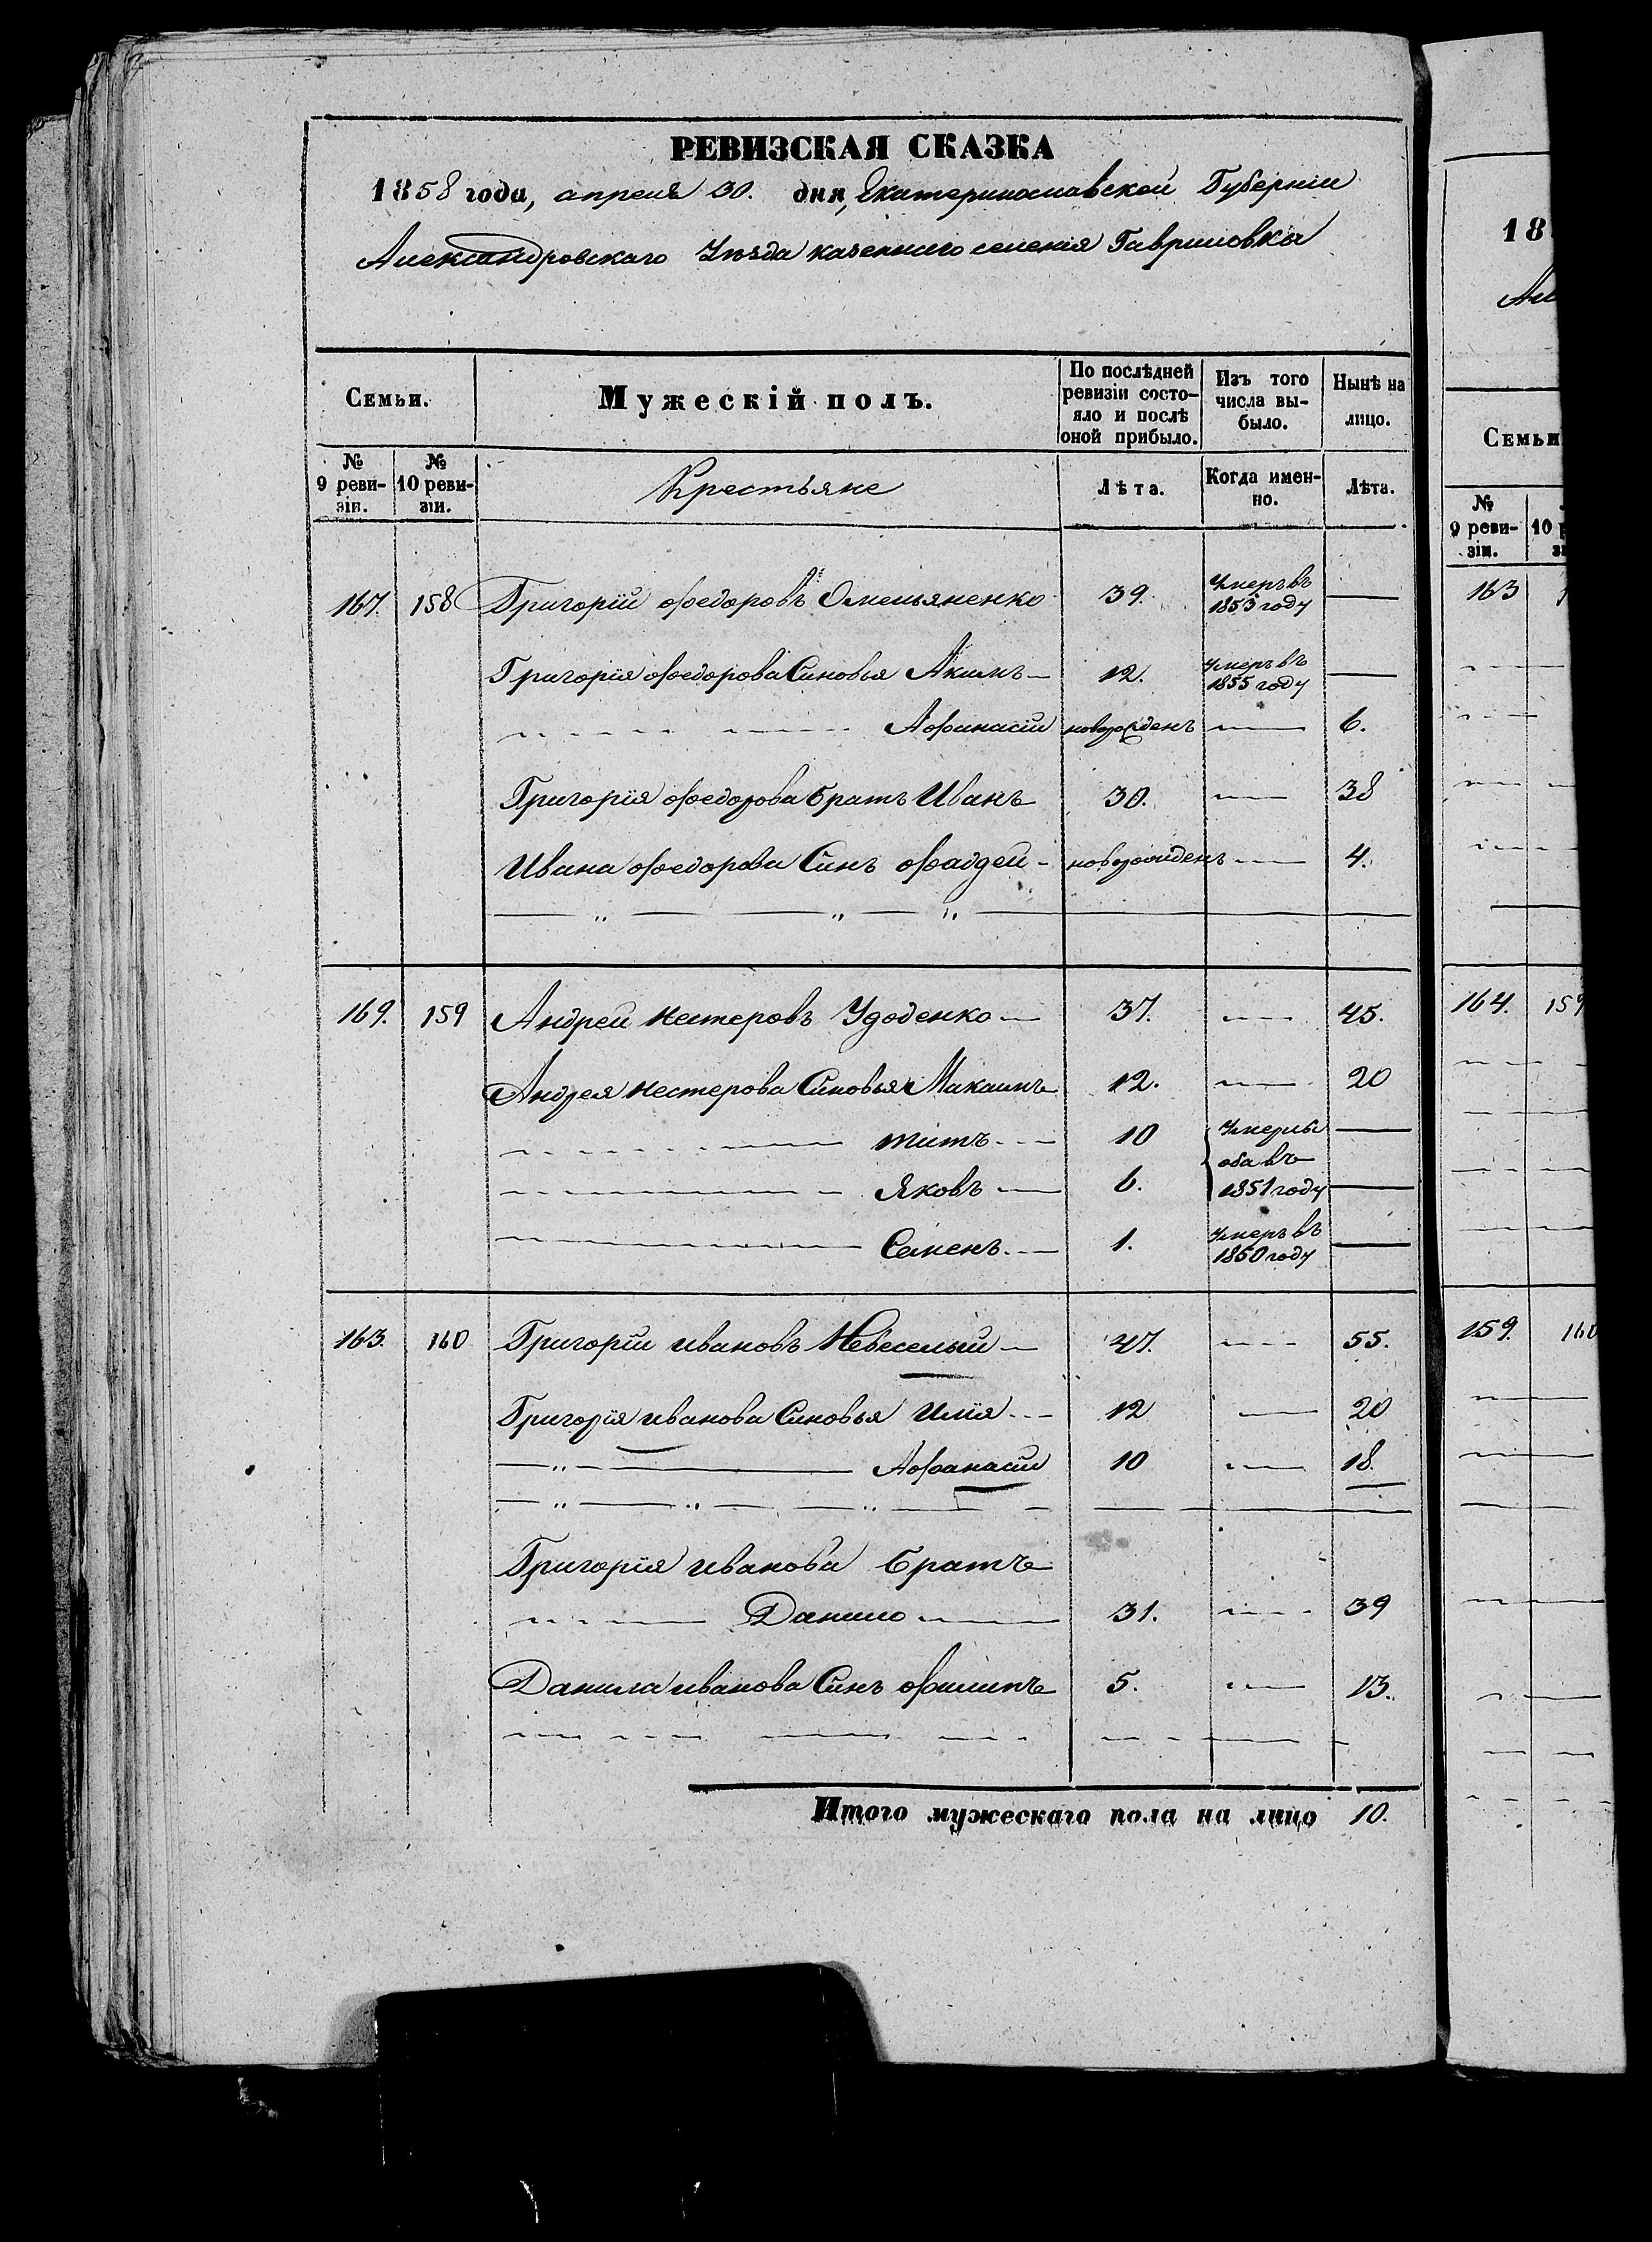 РЕВИЗСКАЯ СКАЗКА
1858 года, апреля 30. дня, Екатеринославской Губерніи
Александровскаго Уѣзда казеннаго селенія Гавриловки
Семьи. Мужескій полъ. По послѣдней ревизіи состояло и послѣ оной прибыло. Изъ того числа выбыло. Нынѣ на лицо.
№ 9 ревизіи. № 10 ревизіи. Крестьяне Лѣта. Когда именно. Лѣта.
167. 158 Григорій Федоровъ Омельяненко 39. Умеръ въ 1853 году —
Григорія Федорова Синовья Акимъ — 12. Умеръ въ 1855 году —
Афанасій новорожденъ — 6.
Григорія Федорова братъ Иванъ 30. — 38
Ивана Федорова Синъ Фаддей - новорожденъ — 4.
169. 159 Андрей Нестеровъ Удоденко — 37. — 45.
Андрея Нестерова Синовья Максимъ 12. — 20
Титъ — 10 Умерли —
оба въ
Яковъ — 6. 1851 году —
Семенъ — 1. Умеръ въ 1850 году —
163. 160 Григорій Ивановъ Невеселый — 47. — 55.
Григорія Иванова Синовья Илія — 12 — 20
Афанасій 10 — 18.
Григорія Иванова братъ
Данило — 31. — 39
Данила Иванова Синъ Филипъ 5. — 13.
Итого мужескаго пола на лицо 10.
18
Ал
Семьи
№ 9 ревизіи. 10
163
164. 159
159. 160